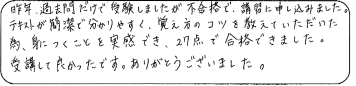 昨年、過去問だけで受験しましたが不合格で、講習に申し込みました。
テキストが簡潔で分かりやすく、覚え方のコツを教えていただいた
為、身につくことを実感でき、27点で合格できました。
受講して良かったです。ありがとうございました。